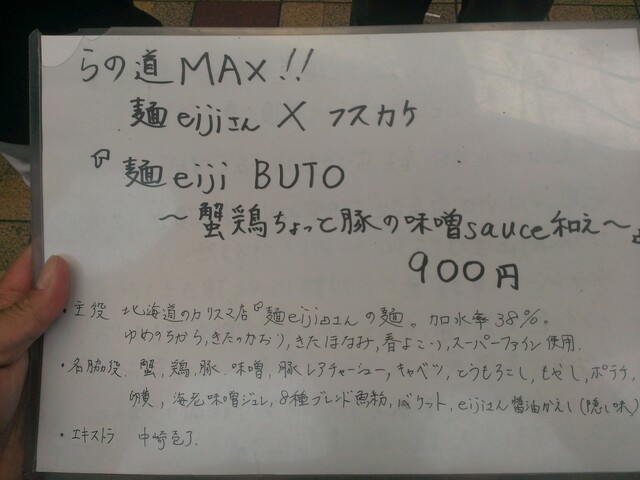 らの道MAX!!
麺eijiさん X フスカケ
『麺eiji BUTO
〜蟹鶏ちょっと豚の味噌sauce和え〜』
900円
・主役 北海道のカリスマ店『麺eiji』さんの麺。加水率38%。
ゆめのちから,きたのかおり,きたほなみ,春よこい,スーパーファイン使用.
・名脇役. 蟹,鶏,豚.味噌,豚レアチャーシュー,キャベツ,とうもろこし,もやし,ポテチ,
海老味噌ジュレ,8種ブレンド魚粉,バケット,eijiさん醤油かえし(隠し味)
・エキストラ 中崎